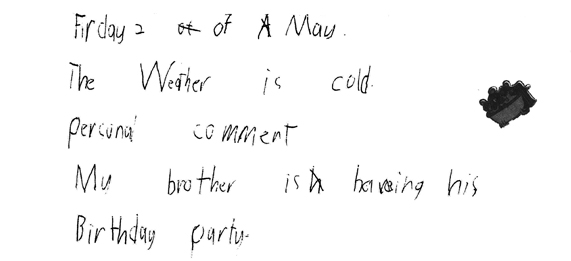 Firday 2 of May.
The Weather is cold.
percunal comment
My brother is having his
Birthday party.